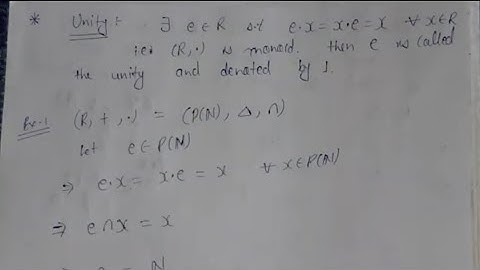 * Unity :- ∃ e ∈ R s.t e·x = x·e = x ∀ x ∈ R
i.e. (R, ·) is monoid. then e is called
the unity and denoted by 1.
Ex-1 (R, +, ·) = (P(N), Δ, ∩)
let e ∈ P(N)
⇒ e·x = x·e = x ∀ x ∈ P(N)
⇒ e ∩ x = x
N